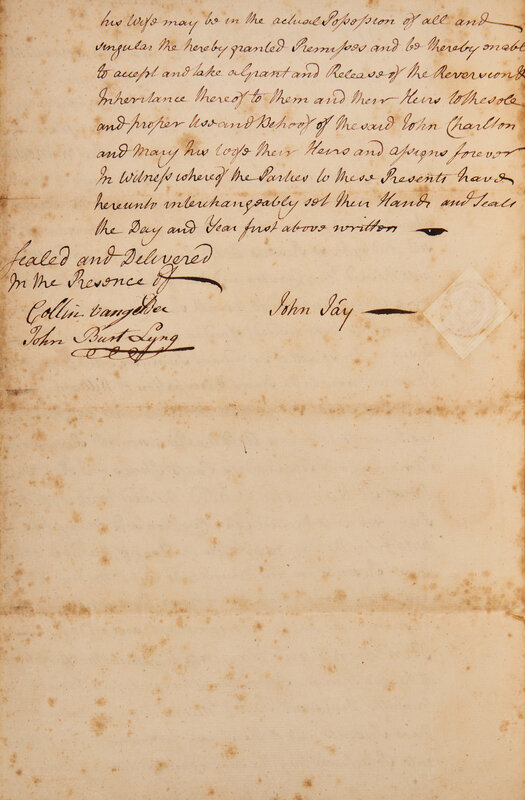 his Wife may be in the actual Possession of all and
singular the hereby granted Premisses and be thereby enable
to accept and take a Grant and Release of the Reversion &
Inheritance thereof to them and their Heirs to the sole
and proper Use and Behoof of the said John Charlton
and Mary his Wife their Heirs and assigns forever
In Witness whereof the Parties to these Presents have
hereunto interchangeably set their Hands and Seals
the Day and Year first above written
Sealed and Delivered
In the Presence of
Collin vangelder
John Jäy
John Burt Lyng